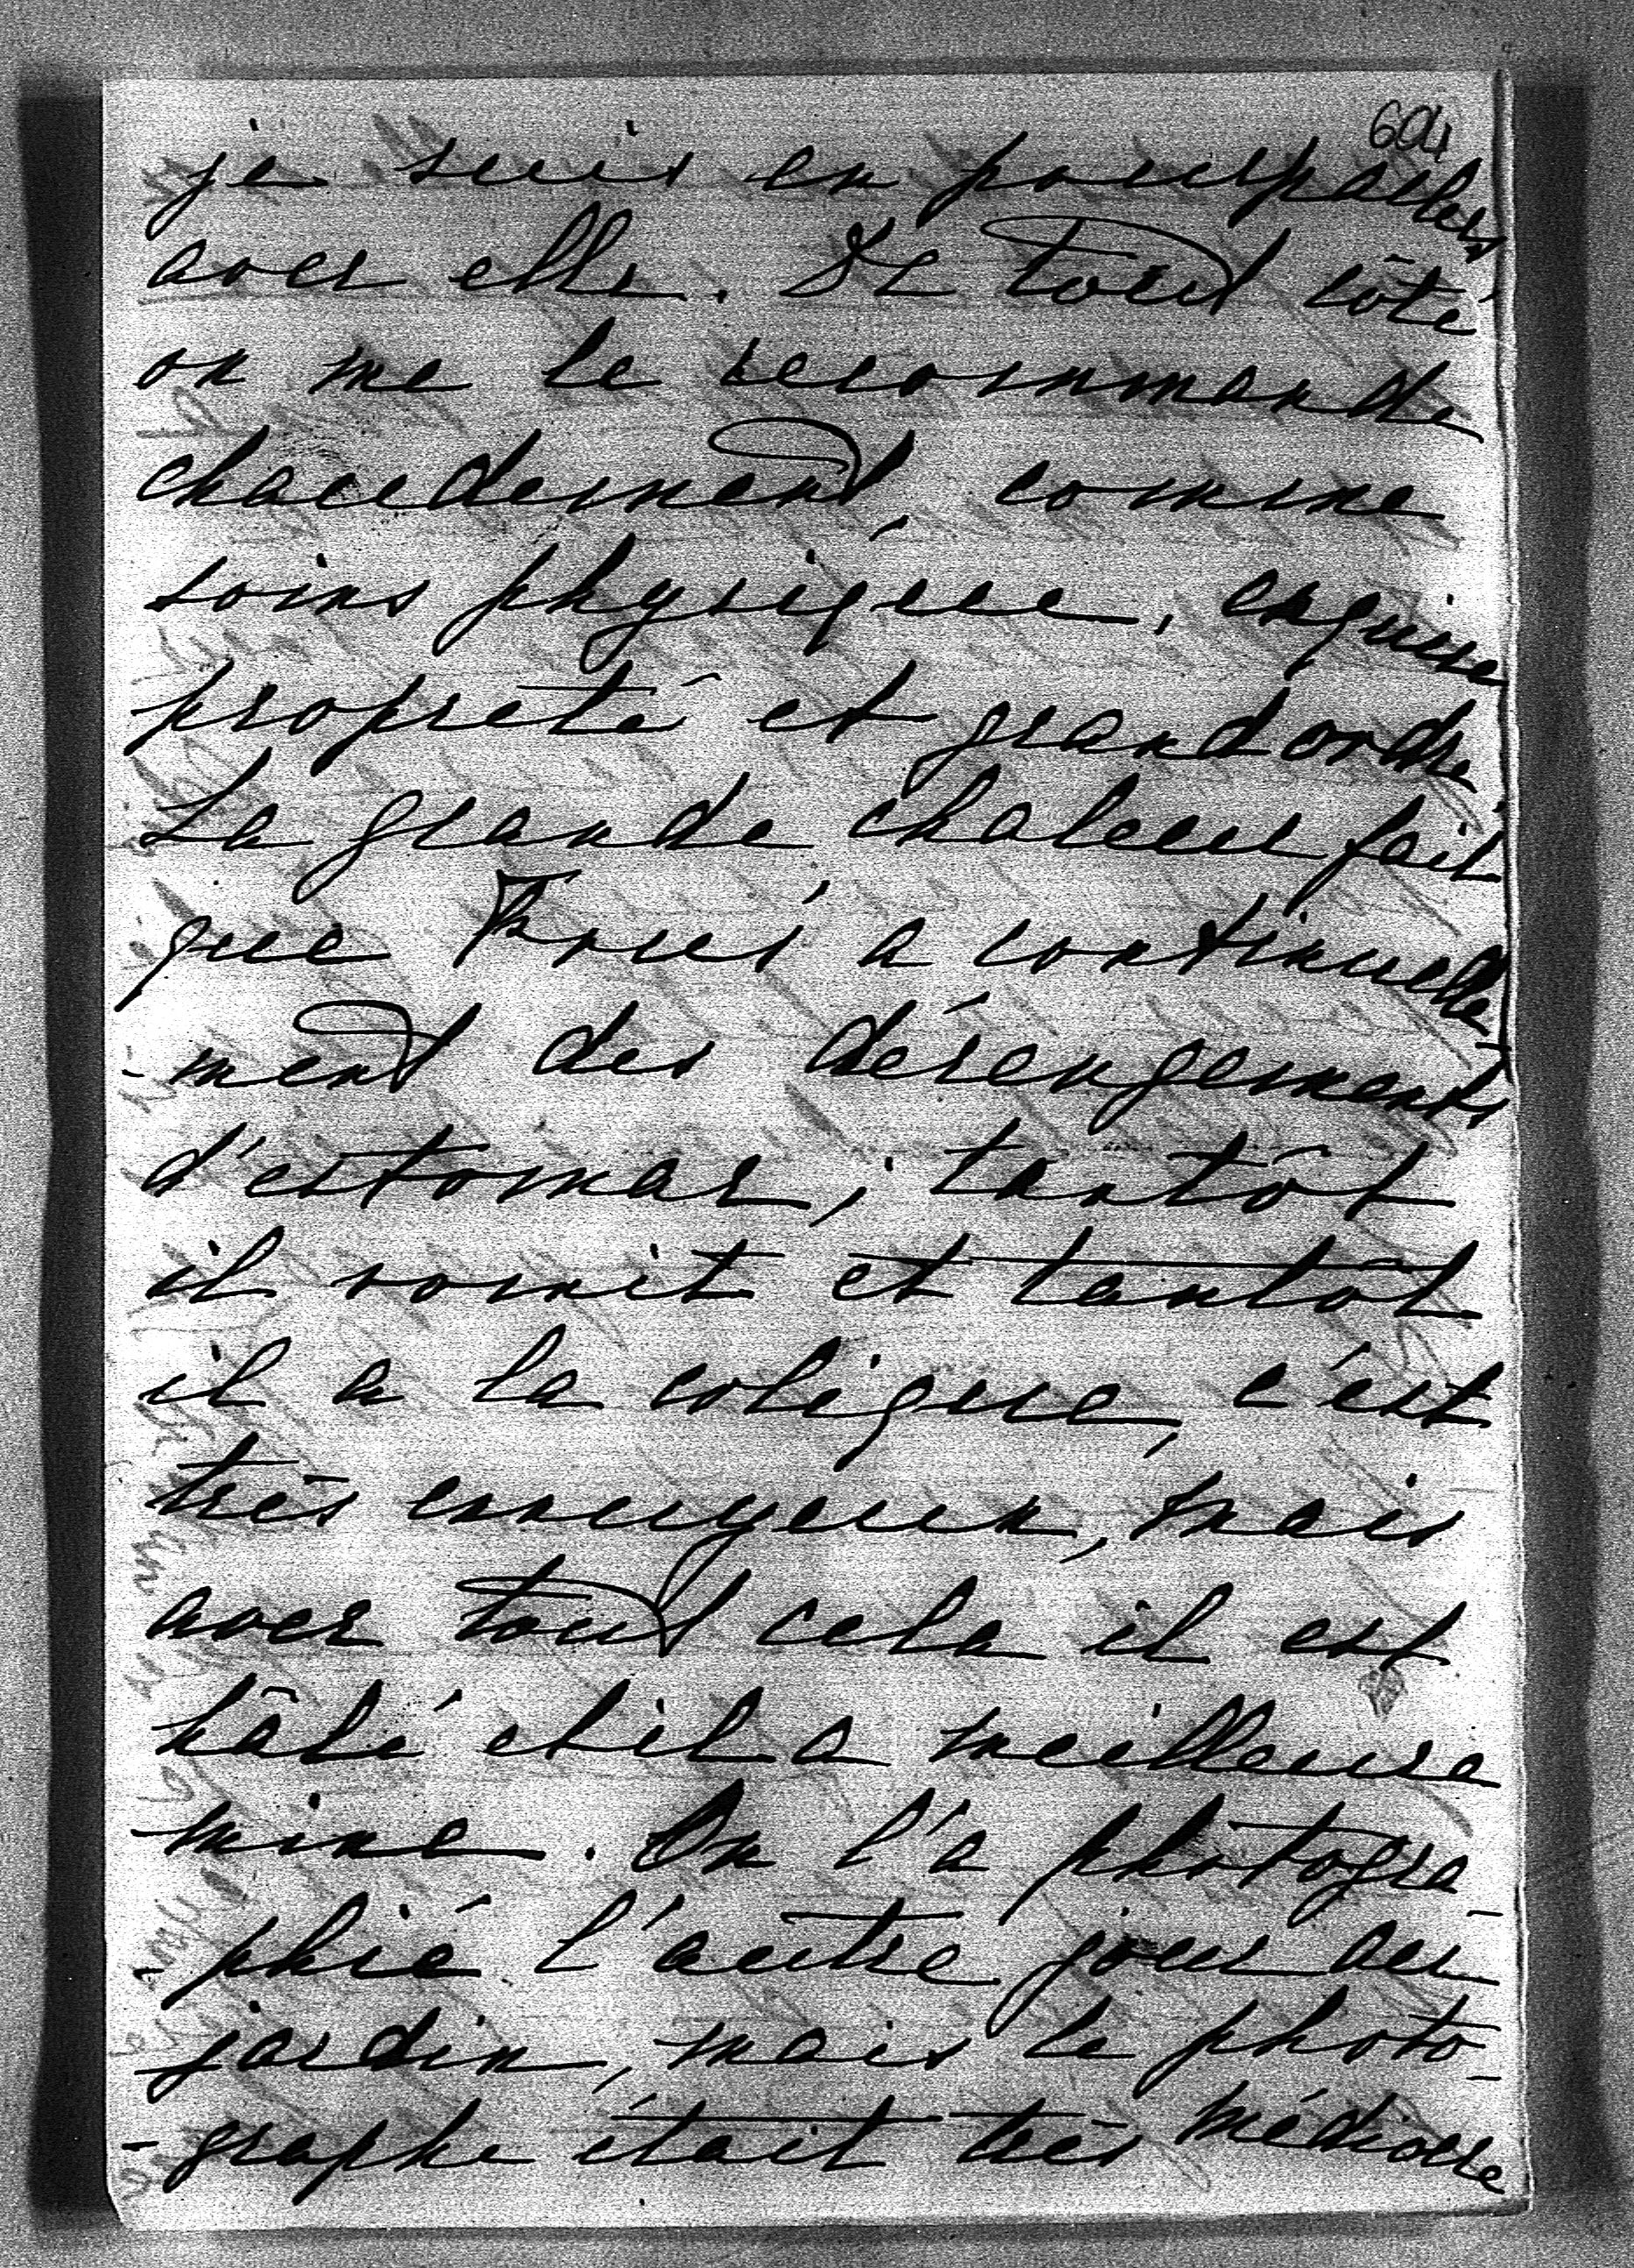 604
je suis en pourparlers
avec elle. De tout côté
on me la recommande
chaudement, comme
soins physique, exquise
propreté et grand ordre.
La grande chaleur fait
que a continuelle-
-ment des dérengements
d'estomac, tantôt
il vomit et tantôt
il a la colique, c'est
très ennuyeux, mais
avec tout cela il est
hâlé et il a meilleure
mine. On l'a photogra-
-phié l'autre jour au
jardin, mais le photo-
-graphe était très médiocre